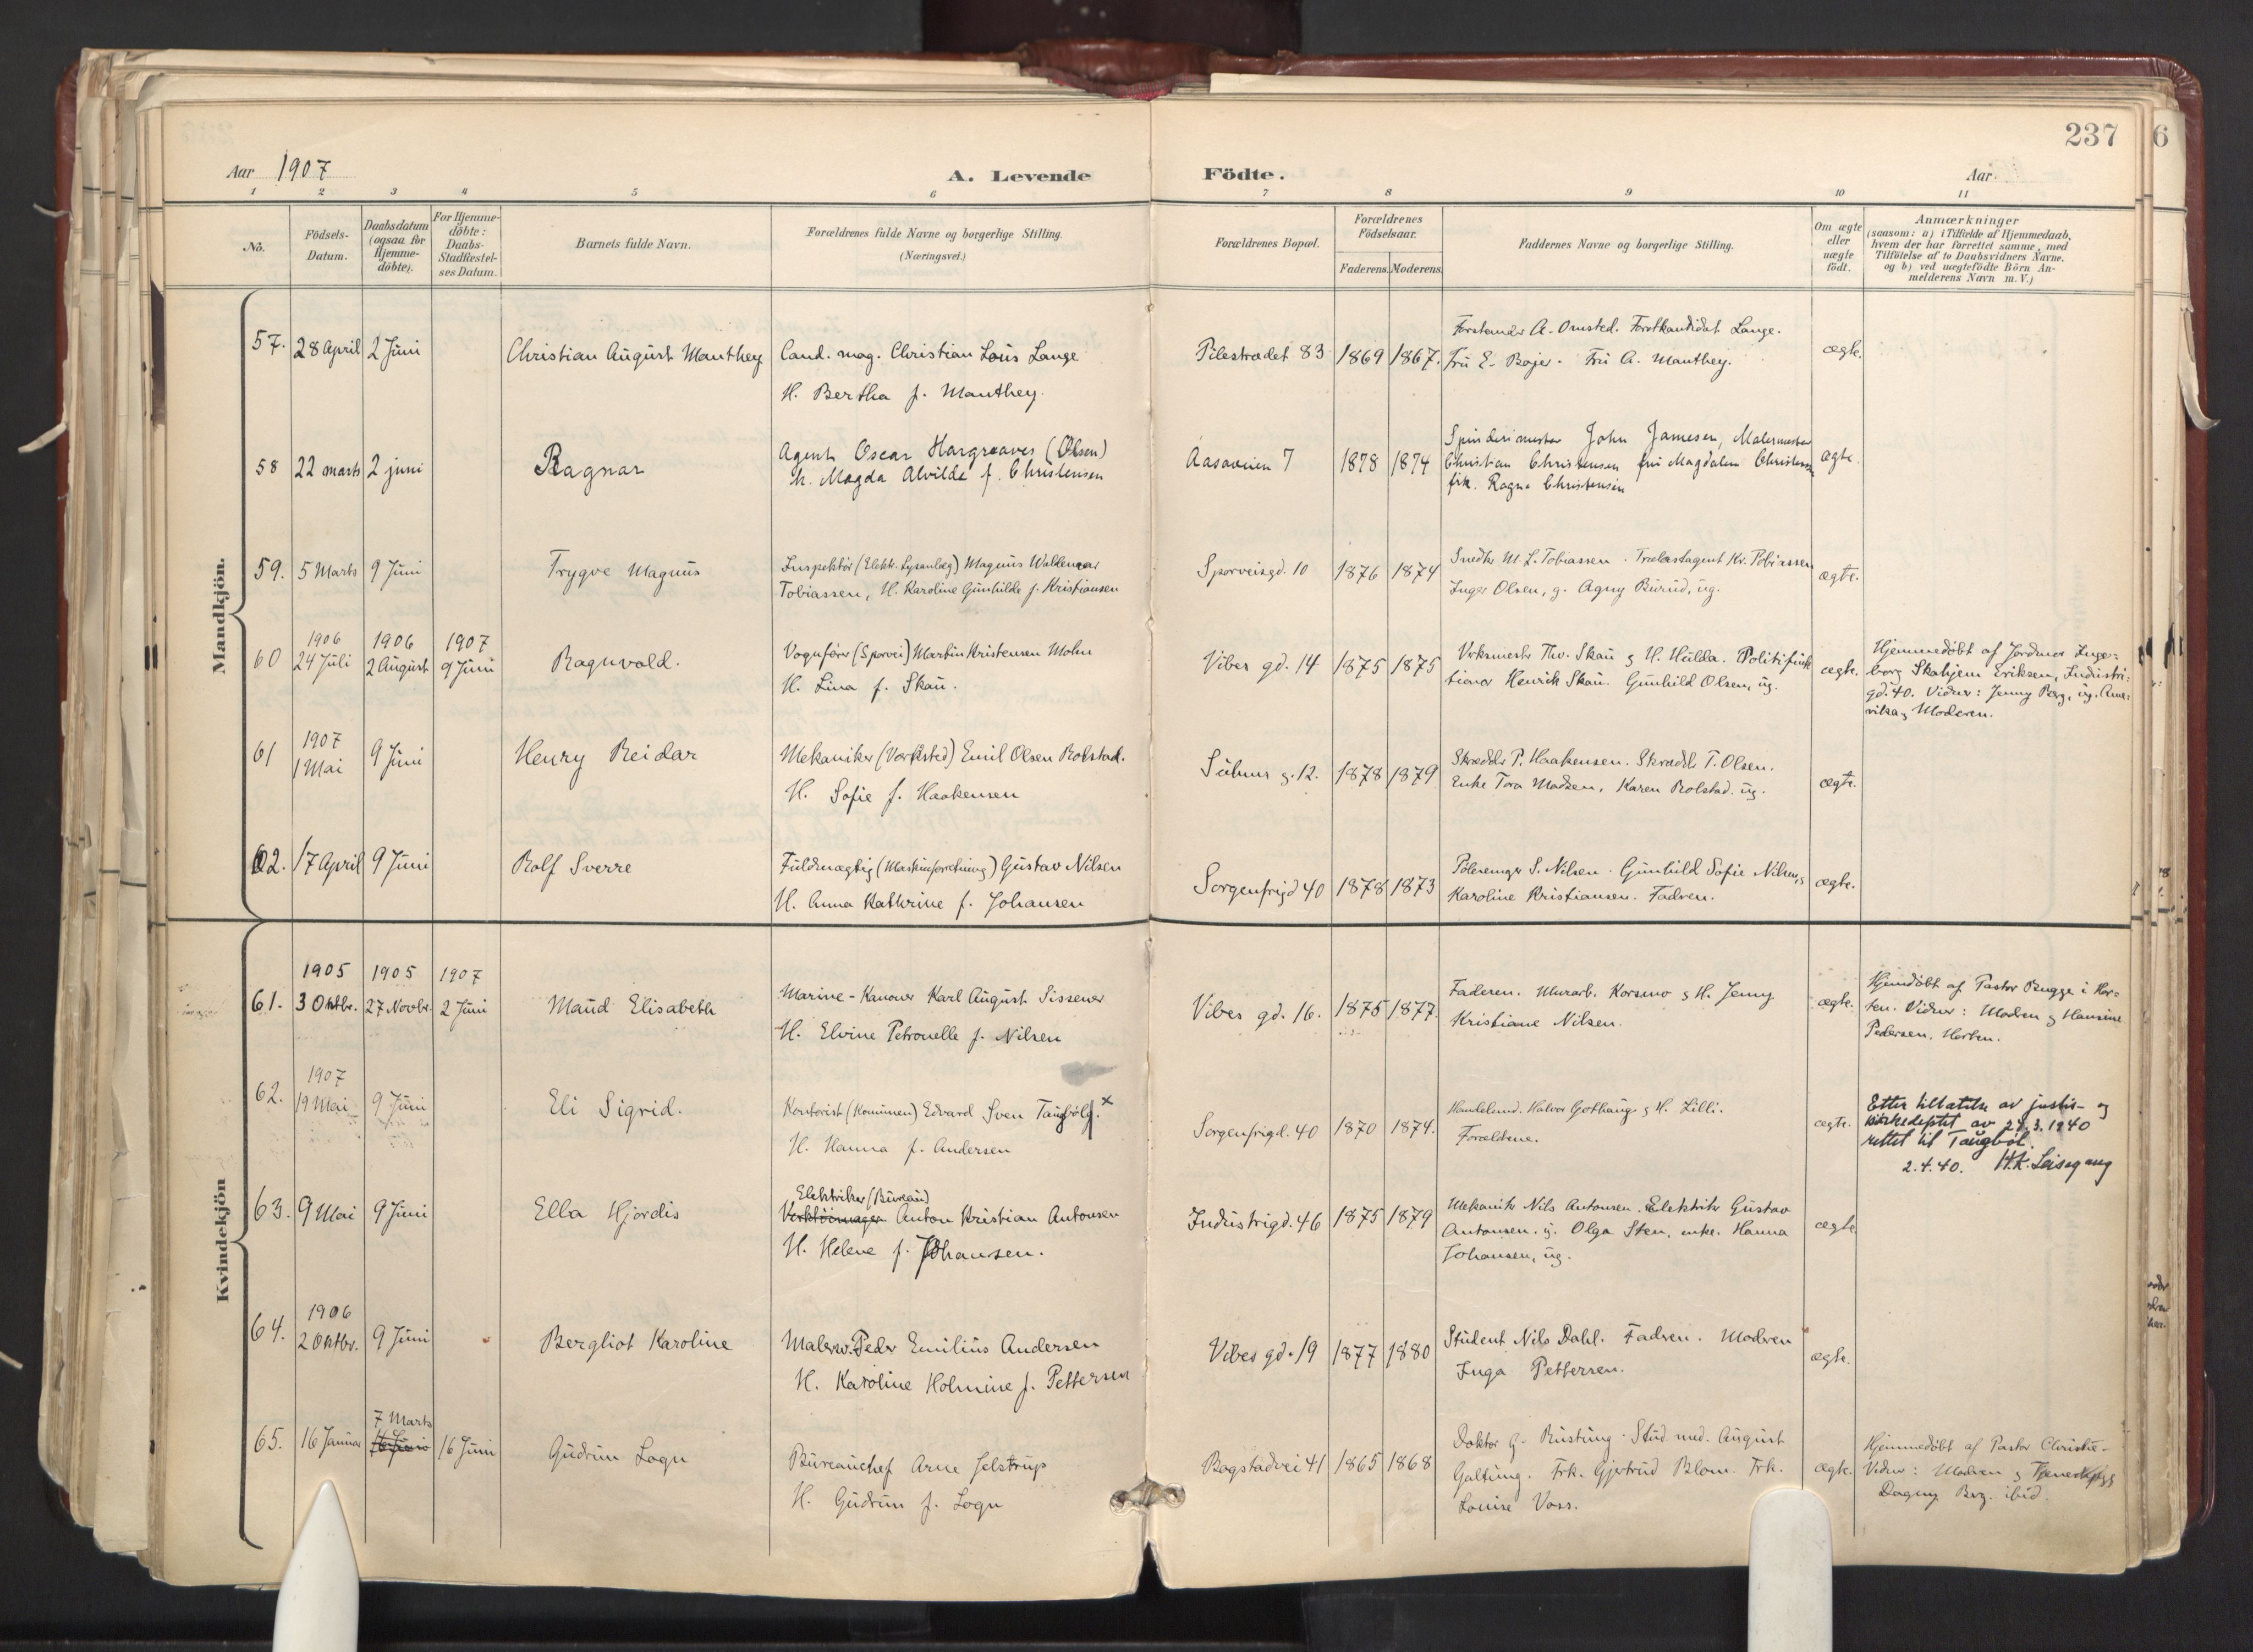 237
6
Aar 1907
A. Levende Födte.
Aar
1 2 3 4 5 6 7 8 9 10 11
No.
Födsels-
Datum.
Daabsdatum
(ogsaa for
Hjemme-
döbte).
For Hjemme-
döbte:
Daabs-
Stadfæstel-
ses Datum.
Barnets fulde Navn.
Forældrenes fulde Navne og borgerlige Stilling.
(Næringsvei.)
Forældrenes Bopæl.
Forældrenes
Födselsaar.
Faderens. Moderens.
Faddernes Navne og borgerlige Stilling.
Om ægte
eller
uægte
födt.
Anmærkninger
(saasom: a) i Tilfælde af Hjemmedaab,
hvem der har forrettet samme, med
Tilföielse af to Daabsvidners Navne.
og b) ved uægtefödte Börn An-
melderens Navn m. V.)
Mandkjön.
57. 28 April 2 Juni
Christian August Manthey
Cand. mag. Christian Lous Lange
H. Bertha f. Manthey.
Pilestrædet 83 1869 1867.
Forstander A. Omsted. Forstkandidat Lange.
Fru E. Bojer. Fru A. Manthey.
ægte.
58 22 marts 2 juni
Ragnar
Agent Oscar Hargreaves (Olsen)
h. Magda Alvilde f. Christensen
Aasaveien 7 1878 1874
Spinderimester John Jamesen, Malermester
Christian Christensen fru Magdalene Christensen
frk. Ragna Christensen
ægte.
59. 5 Marts 9 Juni
Trygve Magnus
Inspektör (Elekt. Lysanlæg) Magnus Waldemar
Tobiassen, H. Karoline Gunhilde f. Kristiansen
Sporveisgd. 10 1876 1874
Snedker M. L. Tobiassen. Trælastagent Kr. Tobiassen
Inger Olsen, g. Agny Burud, ug.
ægte.
60 1906 24 Juli 1906 2 August 1907 9 Juni
Ragnvald.
Vognförer (Sporvei) Martin Kristensen Mohn
H. Lina f. Skau.
Vibes gd. 14 1875 1875
Verksmester Thv. Skau & H. Hulda. Politifunk
tionær Henrik Skau. Gunhild Olsen, ug.
ægte.
Hjemmedöbt af Jordmor Inge-
borg Skahjem Eriksen, Industri-
gd. 40. Vidner: Jenny Berg, ug. Ame-
rika & Moderen.
61 1907 1 Mai 9 Juni
Henry Reidar
Mekaniker (Værksted) Emil Olsen Rolstad.
H. Sofie f. Haakensen
Suhms g. 12. 1878 1879
Skrædder P. Haakensen. Skrædder T. Olsen.
Enke Tora Madsen, Karen Rolstad. ug.
ægte.
62. 17 April 9 Juni
Rolf Sverre
Fuldmægtig (Maskinforretning) Gustav Nilsen
H. Anna Kathrine f. Johansen
Sorgenfrigd 40 1878 1873
S. Nilsen. Gunhild Sofie Nilsen,
Karoline Kristiansen. Fadren.
ægte.
Kvindekjön
61. 1905 3 Oktbr. 1905 27 Novbr. 1907 2 Juni
Maud Elisabeth
Marine-Kanoner Karl August Sissener
H. Elvine Petronelle f. Nilsen
Vibes gd. 16. 1875 1877.
Faderen. Murarb. Korsmo & H. Jenny
Kristiane Nilsen.
ægte.
Hjemdöbt af Pastor Bugge i Hor-
ten. Vidner: Modren & Hansine
Pedersen. Horten.
62. 1907 19 Mai 9 Juni
Eli Sigrid.
Kontorist (Kommunen) Edvard Sven Taugböl. x
H. Hanna f. Andersen
Sorgenfrigd. 40 1870 1874.
Handelsmd. Halvor Gothaug & H. Lilli.
Forældrene.
ægte.
Etter tillatelse av justis- og
kirkedeptet av 27.3.1940
rettet til Taugböl.
2.4.40. H.K. Leisegang
63. 9 Mai 9 Juni
Ella Hjördis
Elektriker (Bureau)
Verktöimager Anton Kristian Antonsen
H. Helene f. Johansen.
Industrigd. 46 1875 1879
Mekaniker Nils Antonsen. Elektriker Gustav
Antonsen. g. Olga Sten, enke. Hanna
Johansen, ug.
ægte.
64. 1906 2 Oktbr. 9 Juni
Bergliot Karoline
Malersv. Peder Emilius Andersen
H. Karoline Holmine f. Pettersen
Vibes gd. 19 1877 1880
Student Nils Dahl. Fadren. Modren
Inga Pettersen.
ægte.
65. 16 Januar 7 Marts 16 Juni 16 Juni
Gudrun Logn
Bureauchef Arne Jelstrup
H. Gudrun f. Logn
Bogstadvei 41 1865 1868
Doktor G. Rustung. Stud. med. August
Galtung. Frk. Gjertrud Blom. Frk.
Louise Voss.
ægte.
Hjemmedöbt af Pastor Christie-
Vidner: Modren &
Dagny Berg. ibid.